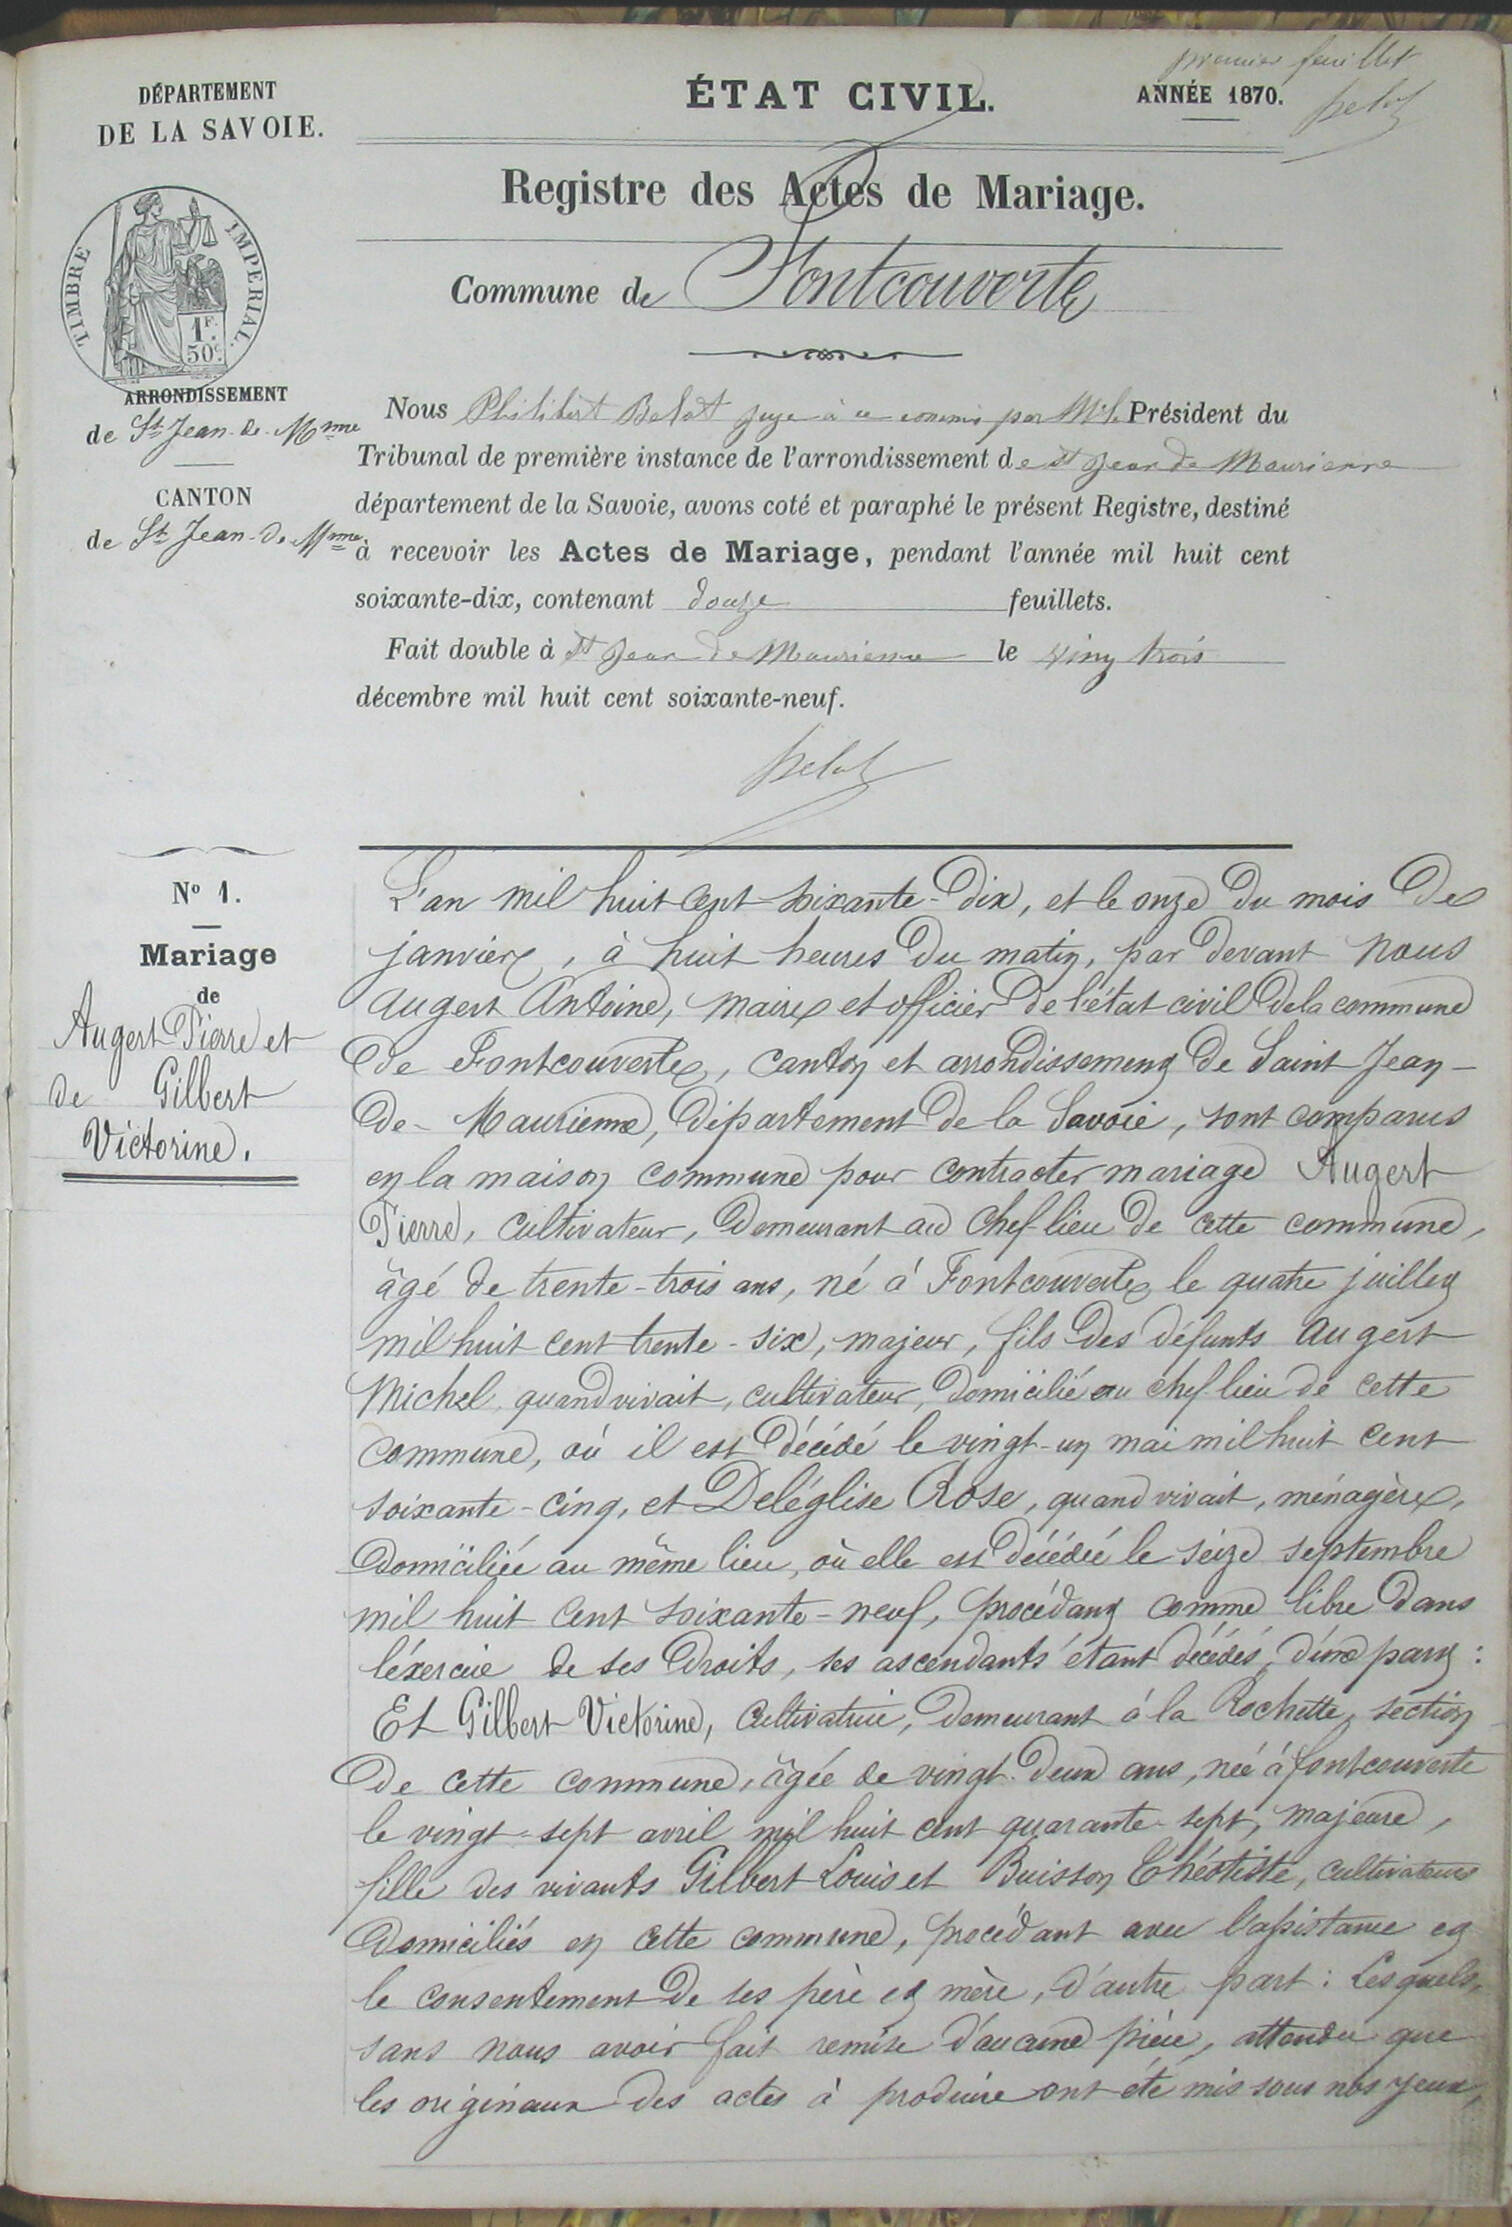 premier feuillet
DÉPARTEMENT
DE LA SAVOIE.
ÉTAT CIVIL.
ANNÉE 1870.
Belat
Registre des Actes de Mariage.
TIMBRE IMPERIAL.
1F.
50c.
Commune de Fontcouverte
ARRONDISSEMENT
de St Jean-de-Mnne
CANTON
de St Jean-de-Mnne
Nous Philibert Belat juge à ce commis par Mr le Président du
Tribunal de première instance de l'arrondissement de St Jean de Maurienne
département de la Savoie, avons coté et paraphé le présent Registre, destiné
à recevoir les Actes de Mariage, pendant l'année mil huit cent
soixante-dix, contenant douze feuillets.
Fait double à St Jean de Maurienne le ving trois
décembre mil huit cent soixante-neuf.
Belat
No 1.
Mariage
de
Augert Pierre et
de Gilbert
Victorine.
L'an mil huit cent soixante-dix, et le onze du mois de
janvier, à huit heures du matin, par devant nous
Augert Antoine, maire et officier de l'état civil de la commune
de Fontcouverte, canton et arrondissement de Saint Jean-
de-Maurienne, département de la Savoie, sont comparus
en la maison commune pour contracter mariage Augert
Pierre, cultivateur, demeurant au chef-lieu de cette commune,
âgé de trente-trois ans, né à Fontcouverte le quatre juillet
mil huit cent trente-six, majeur, fils des défunts Augert
Michel, quand vivait, cultivateur, domicilié au chef lieu de cette
commune, où il est décédé le vingt-un mai mil huit cent
soixante-cinq, et Deléglise Rose, quand vivait, ménagère,
domiciliée au même lieu, où elle est décédée le seize septembre
mil huit cent soixante-neuf, procédant comme libre dans
l'éxercice de ses droits, ses ascendants étant décédés, d'une part:
Et Gilbert Victorine, cultivatrice, demeurant à la Rochette, section
de cette commune, âgée de vingt-deux ans, née à fontcouverte
le vingt-sept avril mil huit cent quarante-sept, majeure,
fille des vivants Gilbert Louis et Buisson Théotiste, cultivateurs
domiciliés en cette commune, procédant avec l'assistance et
le consentement de ses père et mère, d'autre part: Lesquels,
sans nous avoir fait remise d'aucune pièce, attendu que
les originaux des actes à produire ont été mis sous nos yeux,